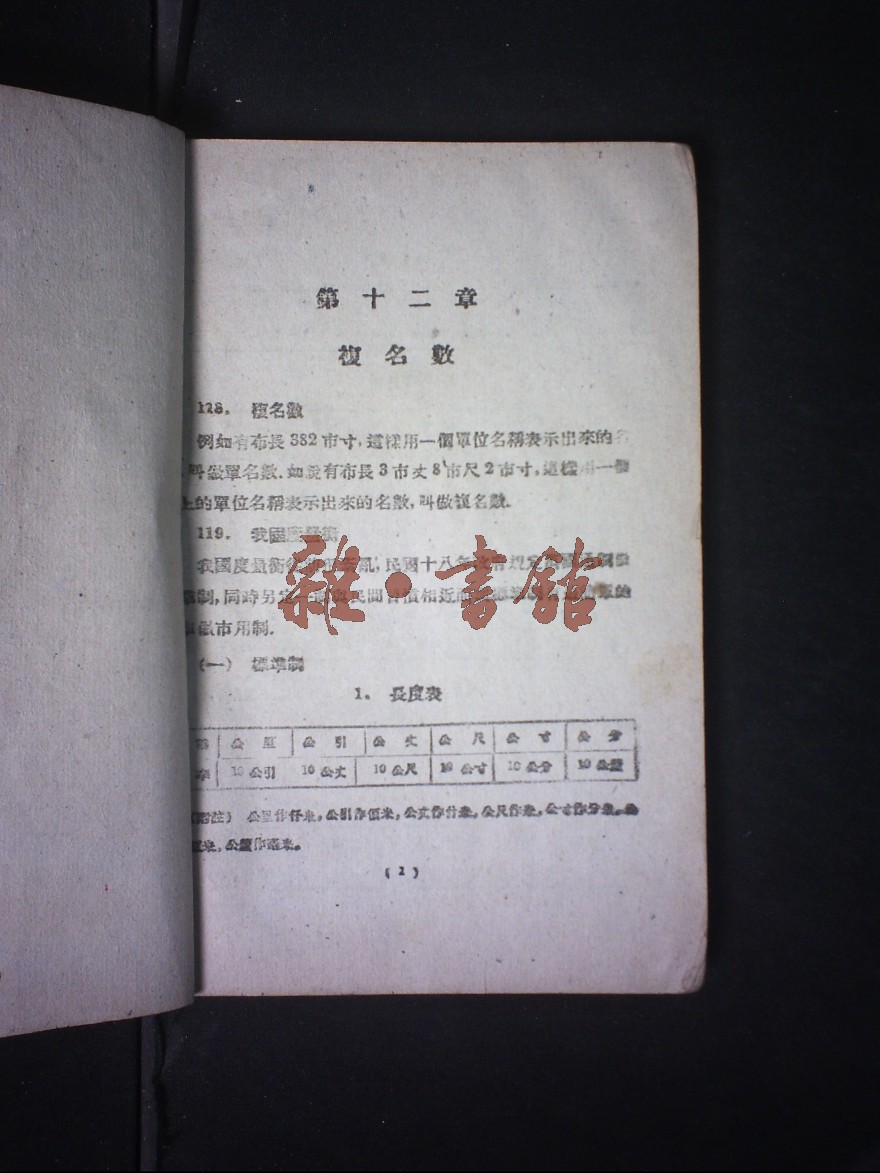 第十二章
複名數
128. 複名數
例如有布長 382 市寸, 這樣用一個單位名稱表示出來的名
叫做單名數. 如說有布長 3 市丈 8 市尺 2 市寸, 這樣用一個
上的單位名稱表示出來的名數, 叫做複名數.
119. 我國度量衡
我國度量衡 民國十八年
制, 同時另定一 民間習慣相近
做市用制.
雜·書館
(一) 標準制
1. 長度表
公里 公引 公丈 公尺 公寸 公分
10公引 10公丈 10公尺 10公寸 10公分 10公釐
(附註) 公里作仟米, 公引作佰米, 公丈作什米, 公尺作米, 公寸作分米, 公
厘米, 公釐作毫米.
(1)